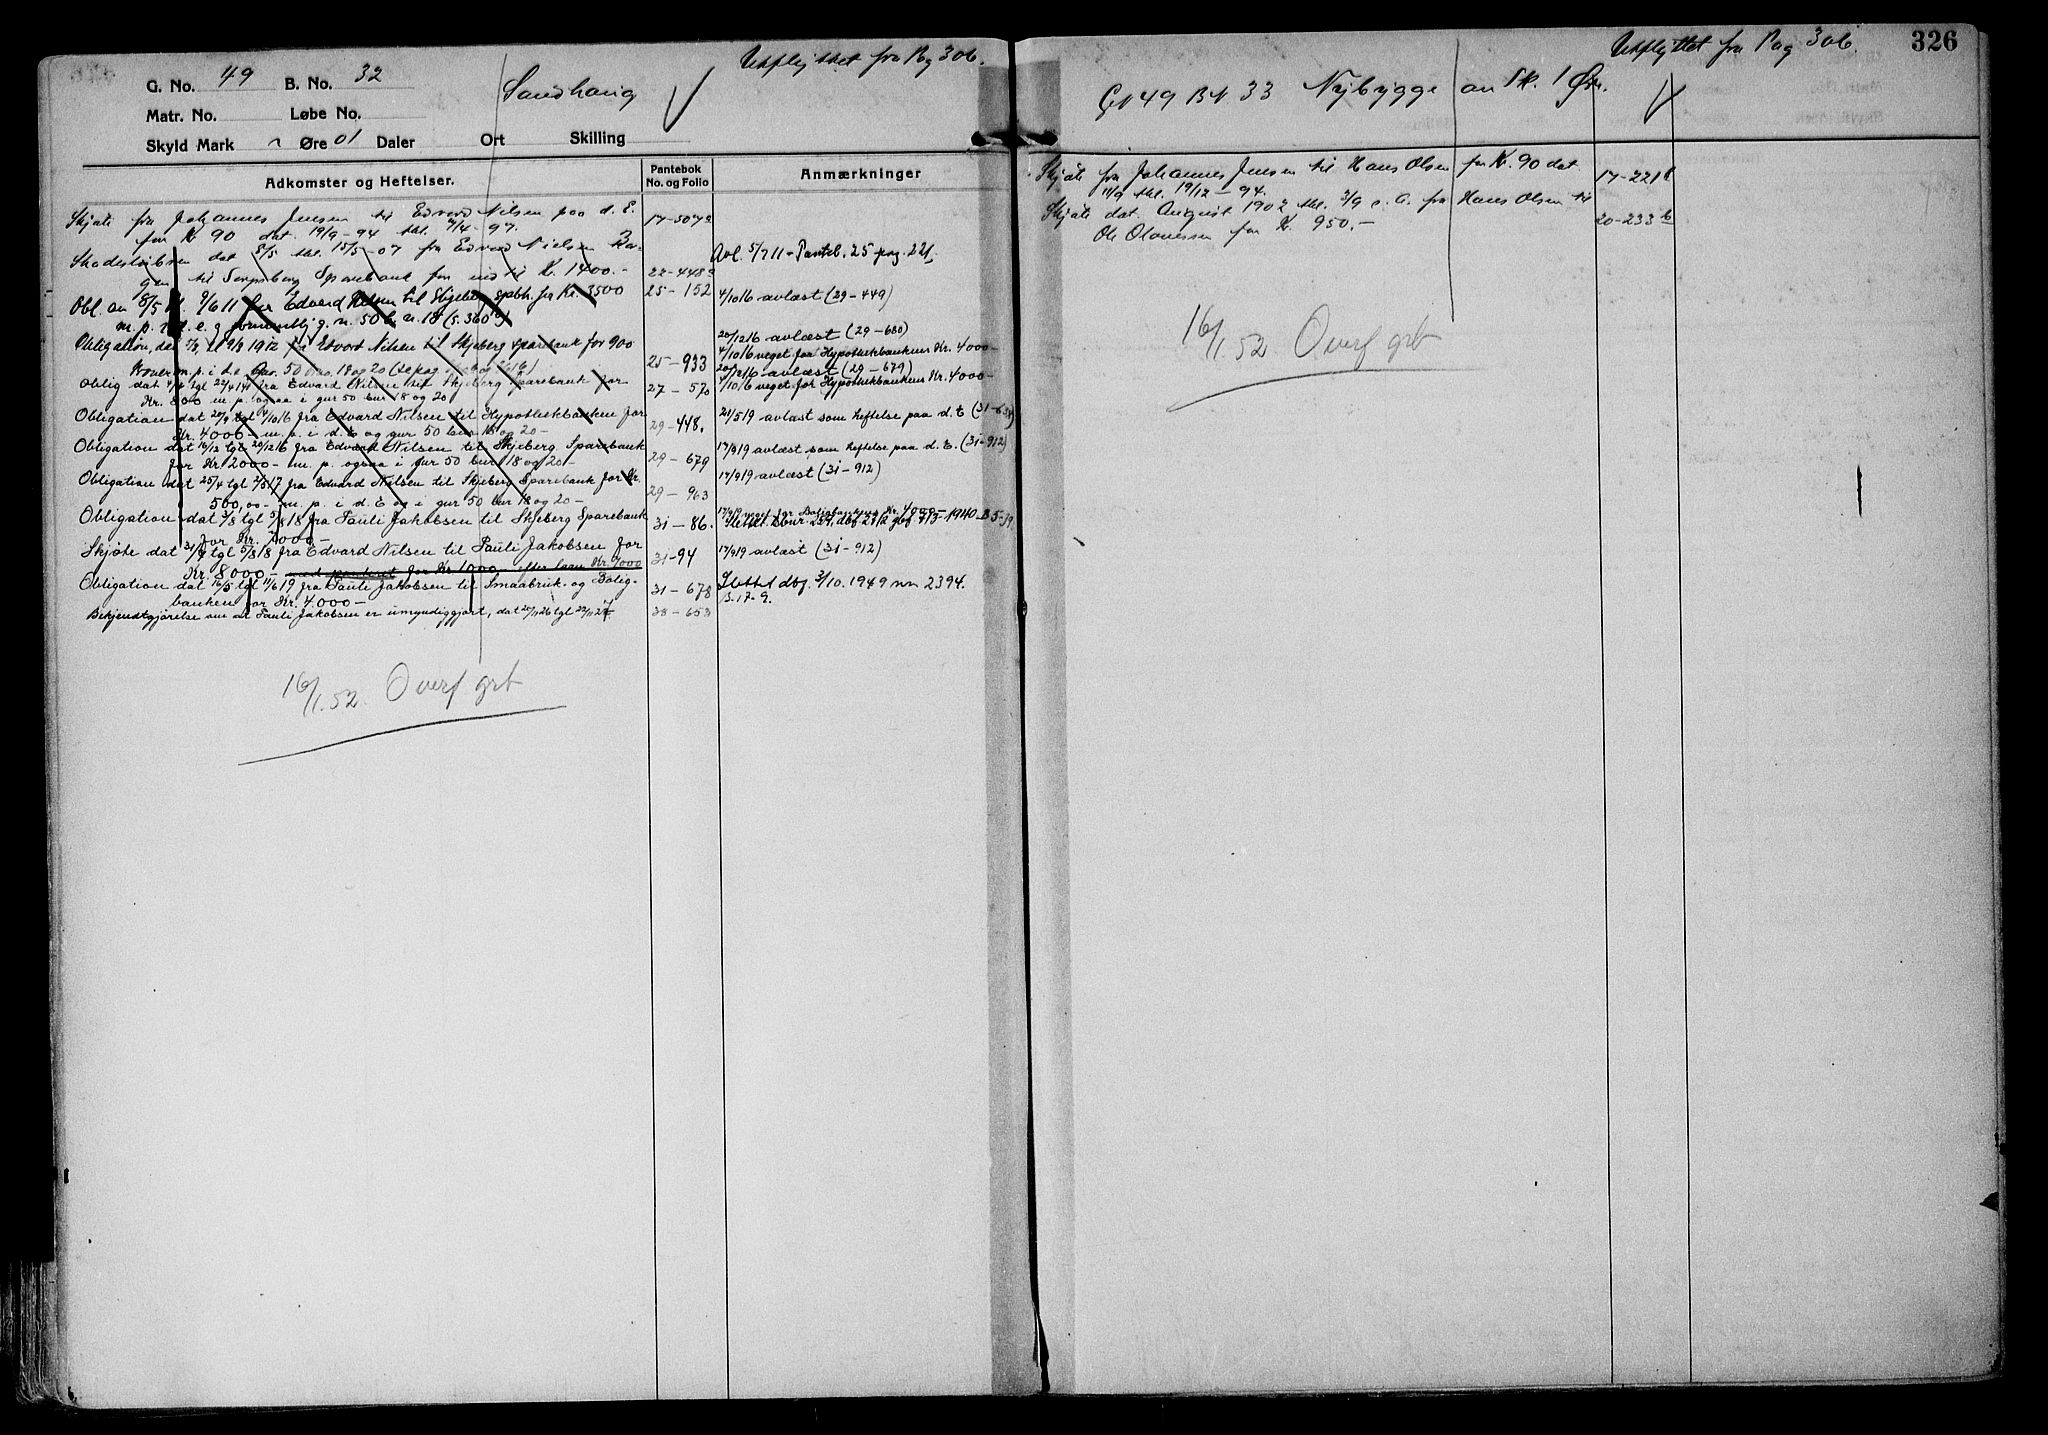 Utflyttet fra Pag 306.
G. No. 49 B. No. 32
Sandhaug
Matr. No. Løbe No.
Skyld Mark " Øre 01 Daler Ort Skilling
Adkomster og Heftelser. Pantebok No. og Folio Anmærkninger
Skjøte fra Johannes Jensen til Edvard Nilsen paa d. E. 17-507a
for Kr 90 dat. 19/9-94 thl. 7/4-97.
Skadesløsbrev dat 8/5 thl. 15/5-07 fra Edvard Nielsen Avl. 5/7 11 - Panteb. 25 pag. 221.
til Sarpsborg Sparebank for indtil Kr. 1400.- 22-448a
Obl. av 8/5 9/6 11 fra Edvard Nilsen til Skjeberg spbk. for Kr. 3500 25-152 4/10 16 avlæst (29-449)
m. p. g. n. 50 b. n. 18 (s. 360)
Obligation, dat 1912 fra Edvard Nilsen til Skjeberg sparebank for 900 20/12 16 avlæst (29-680)
m. p. i d. e. Gnr. 50 bnr. 18 og 20 25-933 4/10 16 veget for Hypothekbankens Kr. 4000-
20/12 16 avlæst (29-679)
Oblig dat 4/4 tgl 22/4 14 fra Edvard Nilsen til Skjeberg Sparebank for 27-570 4/10 16 veget for Hypothekbankens Kr. 4000-
Kr. 800 m. p. ogsaa i gnr 50 bnr 18 og 20
Obligation dat 20/9 tgl 4/10 16 fra Edvard Nilsen til Hypothekbanken for 29-448. 21/5 19 avlæst som heftelse paa d. E (31-638)
Kr. 4000- m. p. i d. E og gnr 50 bnr 18 og 20-
Obligation dat 16/12 tgl 20/12 16 fra Edvard Nilsen til Skjeberg Sparebank 17/9 19 avlæst som heftelse paa d. E. (31-912)
for Kr 2000- m. p. ogsaa i gnr 50 bnr 18 og 20- 29-679
Obligation dat 25/4 tgl 2/5 17 fra Edvard Nilsen til Skjeberg Sparebank for Kr. 17/9 19 avlæst (31-912)
500,00- m. p. i d. E og i gnr 50 bnr 18 og 20- 29-963
Obligation dat 3/8 tgl 5/8 18 fra Pauli Jakobsen til Skjeberg Sparebank 31-86.
for Kr. 7000-
Skjøte dat 31/7 tgl 5/8 18 fra Edvard Nilsen til Pauli Jakobsen for 31-94 17/9 19 avlæst (31-912)
Kr. 8000- med panteret for Kr 1000 efter laan Kr. 7000
Obligation dat 16/5 tgl 11/6 19 fra Pauli Jakobsen til Smaabruk- og Bolig- 31-678 Slettet dbj. 3/10. 1949 nr 2394.
banken for Kr. 4.000- B. 17-9.
Bekjendtgjørelse om at Pauli Jakobsen er umyndiggjort, dat 20/11 26 tgl 22/11 27 38-653
16/1.52. Overf grb
Utflyttet fra Pag 306.
326
GN 49 BN 33 Nybygge av Sk. 1 Øre.
Skjøte fra Johannes Jensen til Hans Olsen for Kr. 90 dat 17-221b
11/9 thl. 19/12-94.
Skjøte dat. August 1902 thl. 2/9 s. A. fra Hans Olsen til 20-233b
Ole Olavessen for K. 950.-
16/1.52 Overf grb